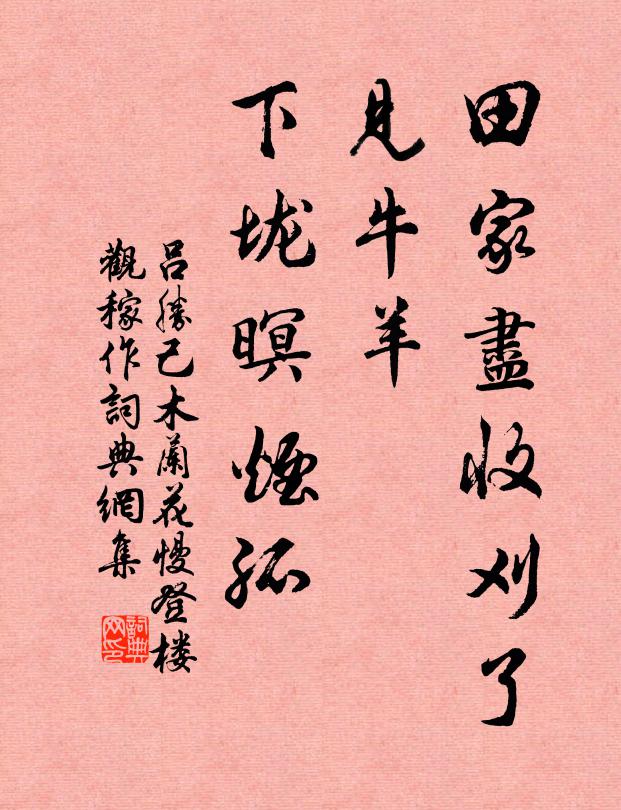 田家盡收刈了
見牛羊
下垅暝煙孤
吕勝己木蘭花慢登楼
觀稼作詞典網集
詞典网印